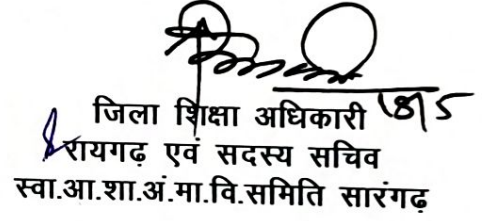 जिला शिक्षा अधिकारी 18/5
रायगढ़ एवं सदस्य सचिव
स्वा.आ.शा.अं.मा.वि.समिति सारंगढ़